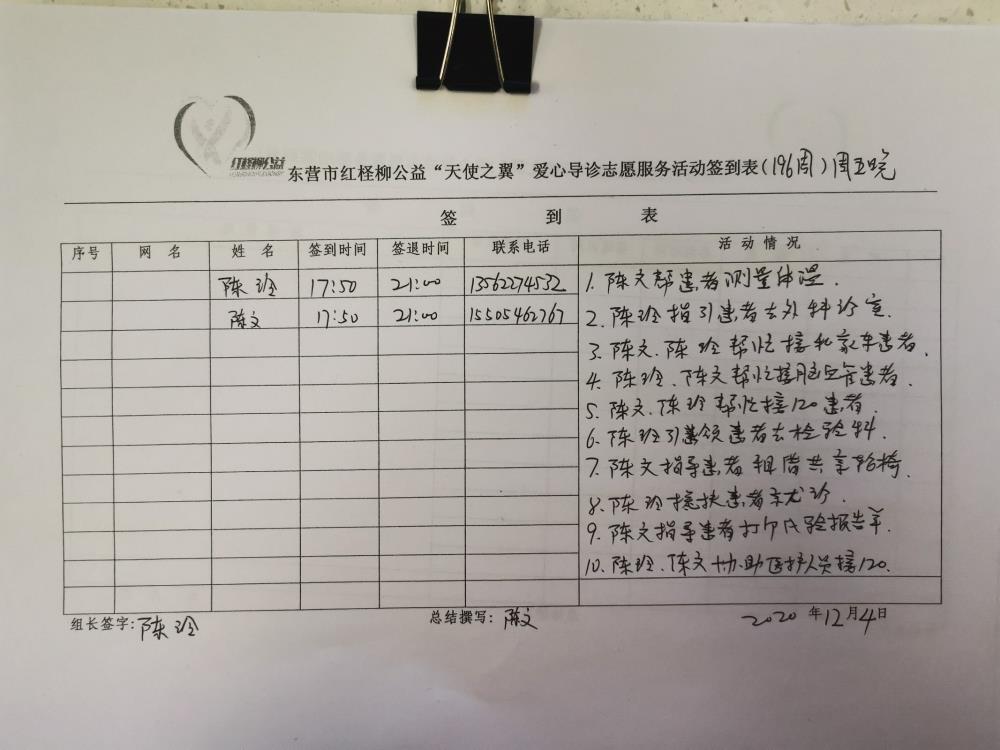 红柽柳公益
东营市红柽柳公益“天使之翼”爱心导诊志愿服务活动签到表(196周)周五晚
签 到 表
序号 网 名 姓 名 签到时间 签退时间 联系电话 活 动 情 况
陈玲 17:50 21:00 13562274532
陈文 17:50 21:00 15505462767
1. 陈文帮患者测量体温.
2. 陈玲指引患者去外科诊室.
3. 陈文.陈玲帮忙接私家车患者.
4. 陈玲.陈文帮忙接脑血管患者.
5. 陈文.陈玲帮忙接120患者.
6. 陈玲引领患者去检验科.
7. 陈文指导患者租借共享轮椅.
8. 陈玲搀扶患者就诊.
9. 陈文指导患者打印化验报告单.
10. 陈玲.陈文协助医护人员接120.
组长签字:陈玲 总结撰写:陈文 2020年12月4日